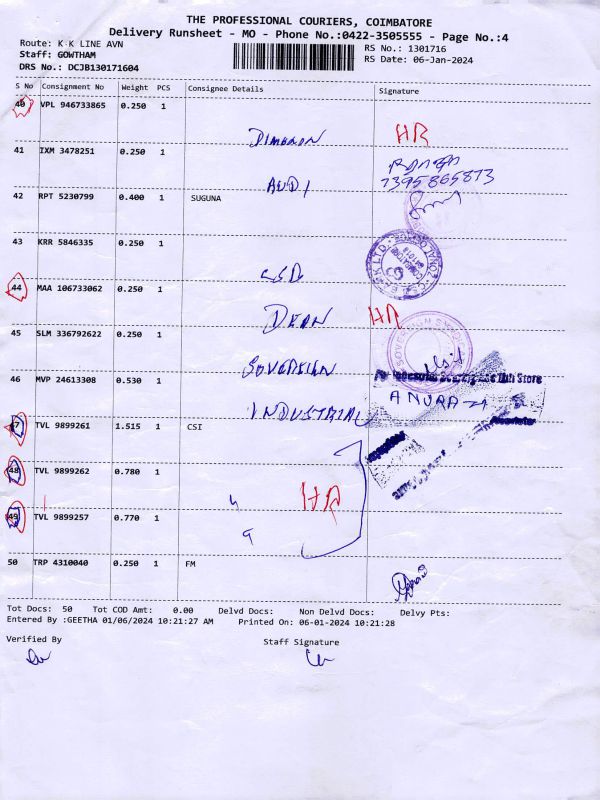 THE PROFESSIONAL COURIERS, COIMBATORE
Delivery Runsheet - MO - Phone No.:0422-3505555 - Page No.:4
Route: K K LINE AVN
RS No.: 1301716
Staff: GOWTHAM
RS Date: 06-Jan-2024
DRS No.: DCJB130171604
S No Consignment No Weight PCS Consignee Details Signature
40 VPL 946733865 0.250 1
DIMENSION HR
41 IXM 3478251 0.250 1
AUDI
7395865873
42 RPT 5230799 0.400 1 SUGUNA
43 KRR 5846335 0.250 1
CSD
44 MAA 106733062 0.250 1
DEAN HR
45 SLM 336792622 0.250 1
SOVEREIGN
46 MVP 24613308 0.530 1
INDUSTRIAL
47 TVL 9899261 1.515 1 CSI
48 TVL 9899262 0.780 1
HR
49 TVL 9899257 0.770 1
50 TRP 4310040 0.250 1 FM
Tot Docs: 50 Tot COD Amt: 0.00 Delvd Docs: Non Delvd Docs: Delvy Pts:
Entered By :GEETHA 01/06/2024 10:21:27 AM Printed On: 06-01-2024 10:21:28
Verified By Staff Signature